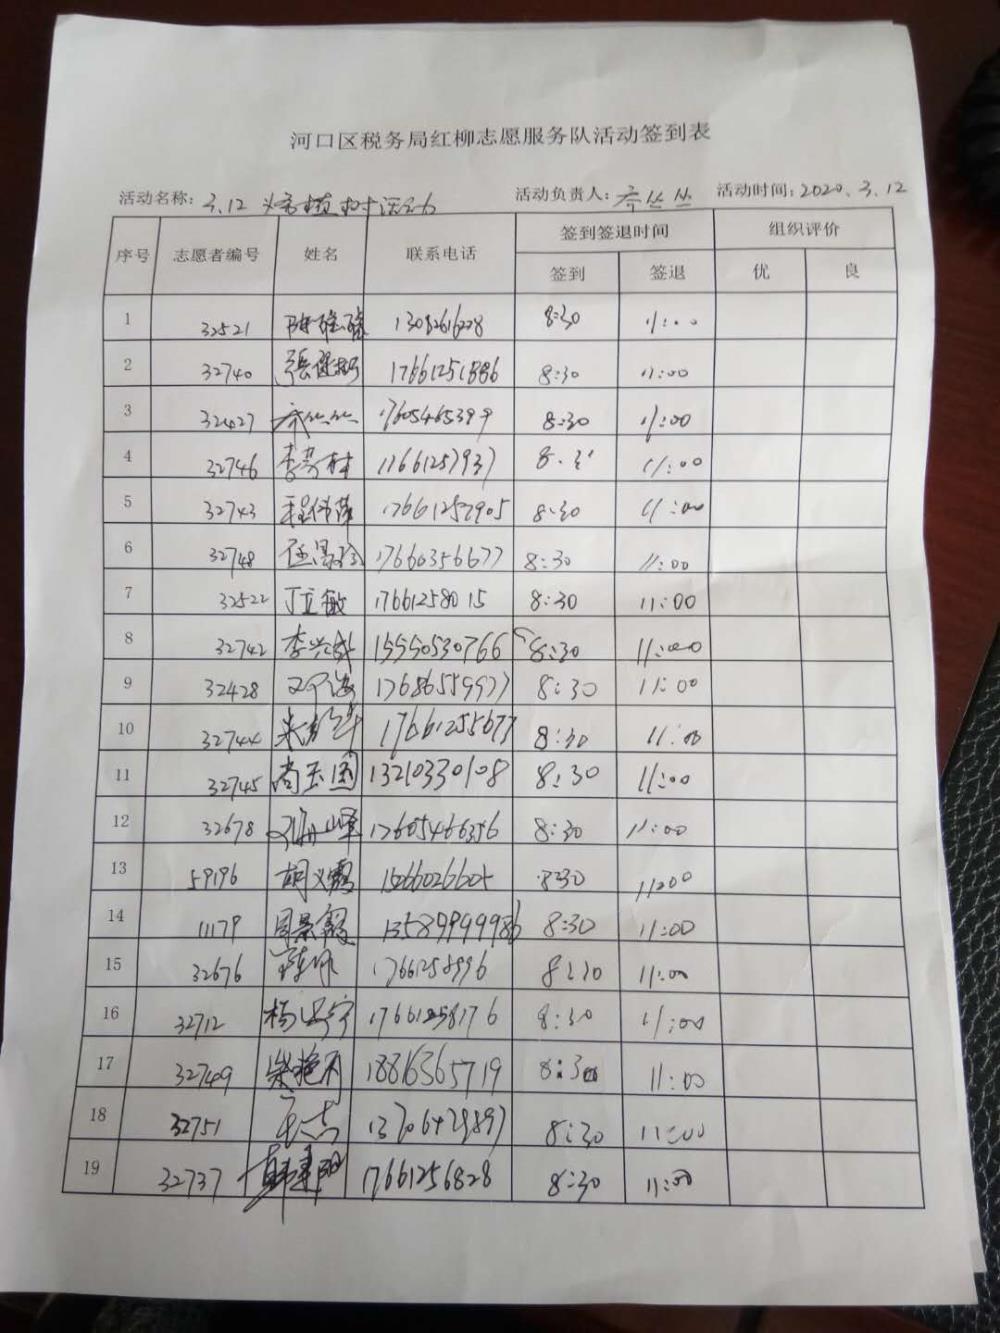 河口区税务局红柳志愿服务队活动签到表
活动名称: 3.12 植树活动 活动负责人: 活动时间: 2020.3.12
序号 志愿者编号 姓名 联系电话 签到签退时间 组织评价
签到 签退 优 良
1 32521 1308261628 8:30 11:00
2 32740 17661251886 8:30 11:00
3 32427 17605465399 8:30 11:00
4 32746 17661257937 8:30 11:00
5 32743 17661257905 8:30 11:00
6 32748 17660356677 8:30 11:00
7 32522 丁立敏 17661258015 8:30 11:00
8 32742 15550530766 8:30 11:00
9 32428 17686559977 8:30 11:00
10 32744 17661255677 8:30 11:00
11 32745 尚玉国 13210330108 8:30 11:00
12 32678 17605466356 8:30 11:00
13 59196 胡义霞 8:30 11:00
14 11179 周景霞 13589999986 8:30 11:00
15 32676 17661258996 8:30 11:00
16 32712 17661258176 8:30 11:00
17 32749 柴艳 18816365719 8:30 11:00
18 32751 13706428897 8:30 11:00
19 32737 韩建 17661256828 8:30 11:00